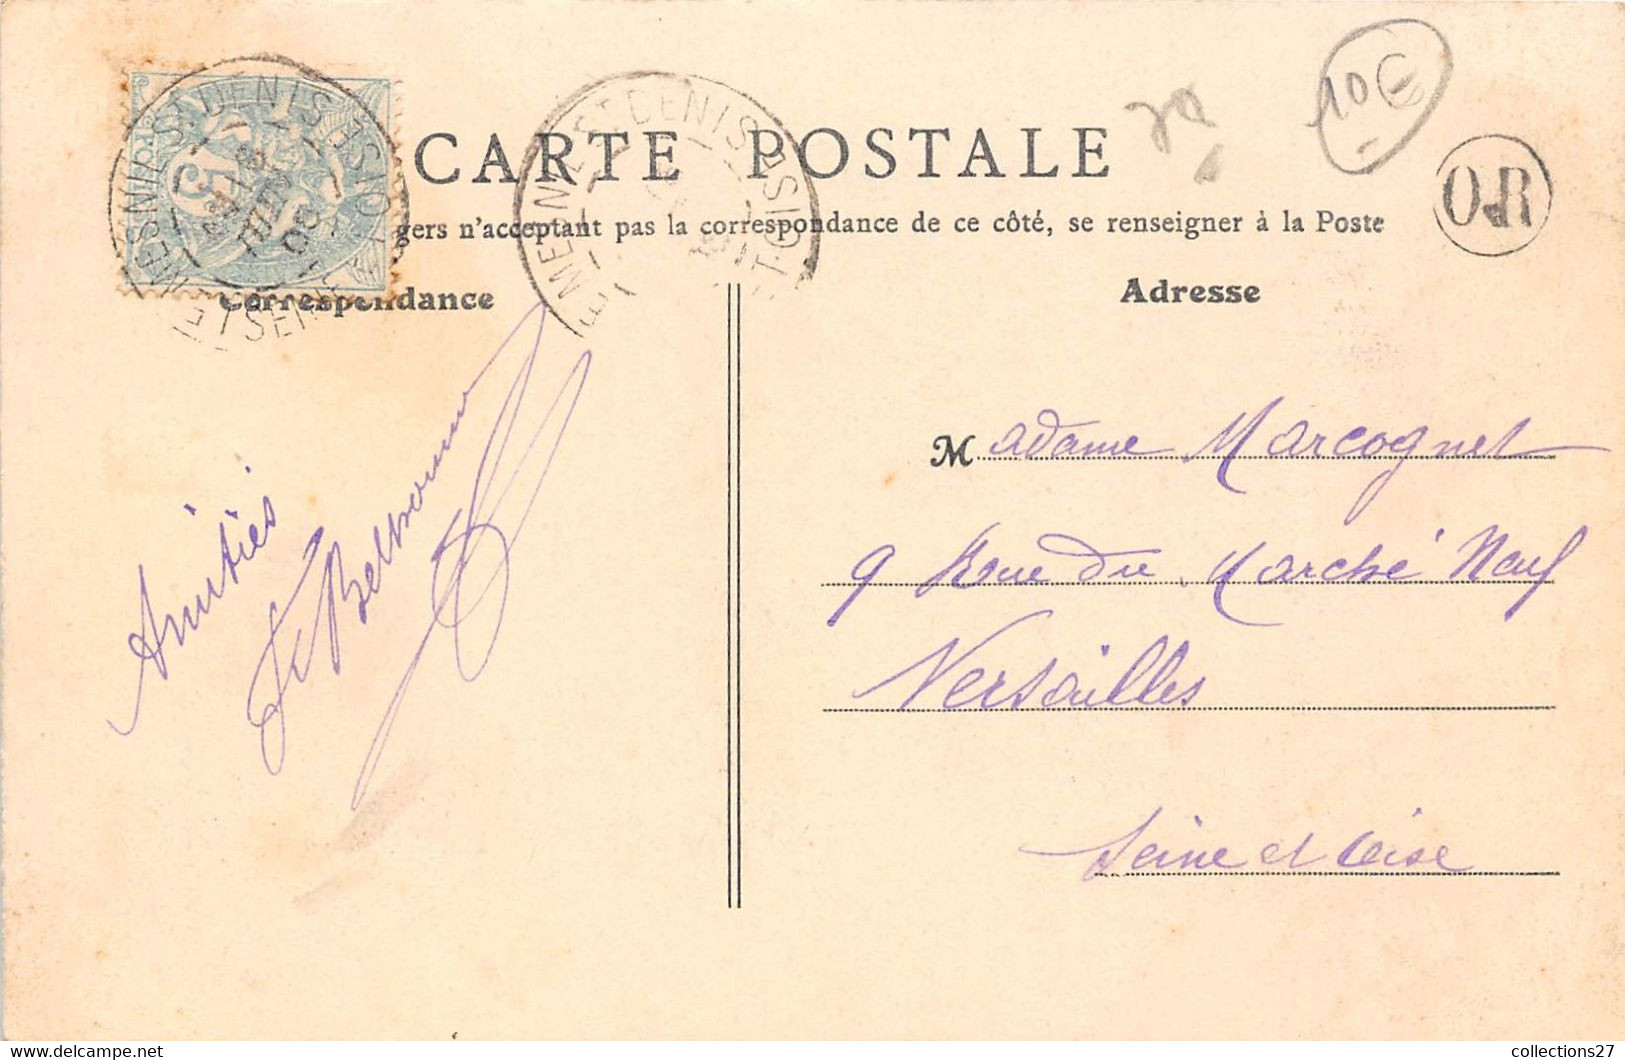 10€
CARTE POSTALE
OR
gers n'acceptant pas la correspondance de ce côté, se renseigner à la Poste
LE MESNIL ST DENIS
SEINE ET OISE
5
06
LE MESNIL ST DENIS
Correspondance
Adresse
Amitiés
Madame Marcognet
9 Rue du Marché Neuf
Versailles
Seine et Oise
collections27